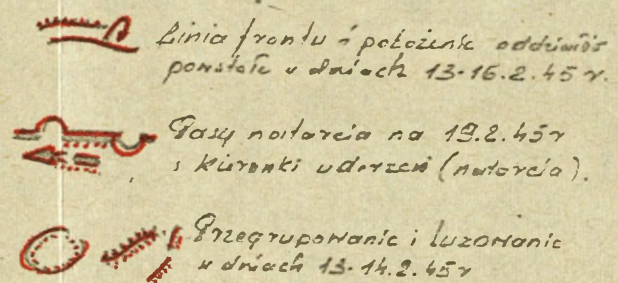 Linia frontu i położenie oddziałów
powstałe w dniach 13-16.2.45 r.
Pasy natarcia na 19.2.45r
i kierunki uderzeń (natarcia).
Przegrupowanie i luzowanie
w dniach 13-14.2.45r